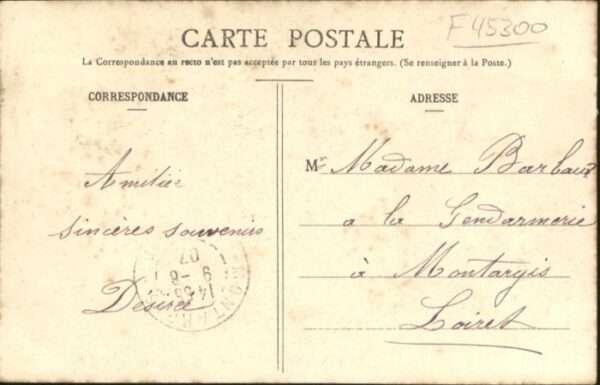 F 45300
CARTE POSTALE
La Correspondance au recto n'est pas acceptée par tour les pays étrangers. (Se renseigner à la Poste.)
CORRESPONDANCE
Amitiés
sincères souvenirs
Désirée
MONTARGIS
14 35
9 -8
07
ADRESSE
M Madame Barbaux
a la Gendarmerie
à Montargis
Loiret